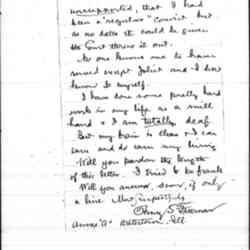 unsupported, that I had
been a "regular" Convict but
as no data it could be given
the Court threw it out.
No one knows me to have
served except Joliet and I don't
know it myself.
I have done some pretty hard
work in my life as a mill
hand & I am totally deaf.
But my brain is clear & I can
earn and do earn my living
Will you pardon the length
of this letter. I tried to be frank
Will you answer, soon, if only
a line Most respectfully
"A"